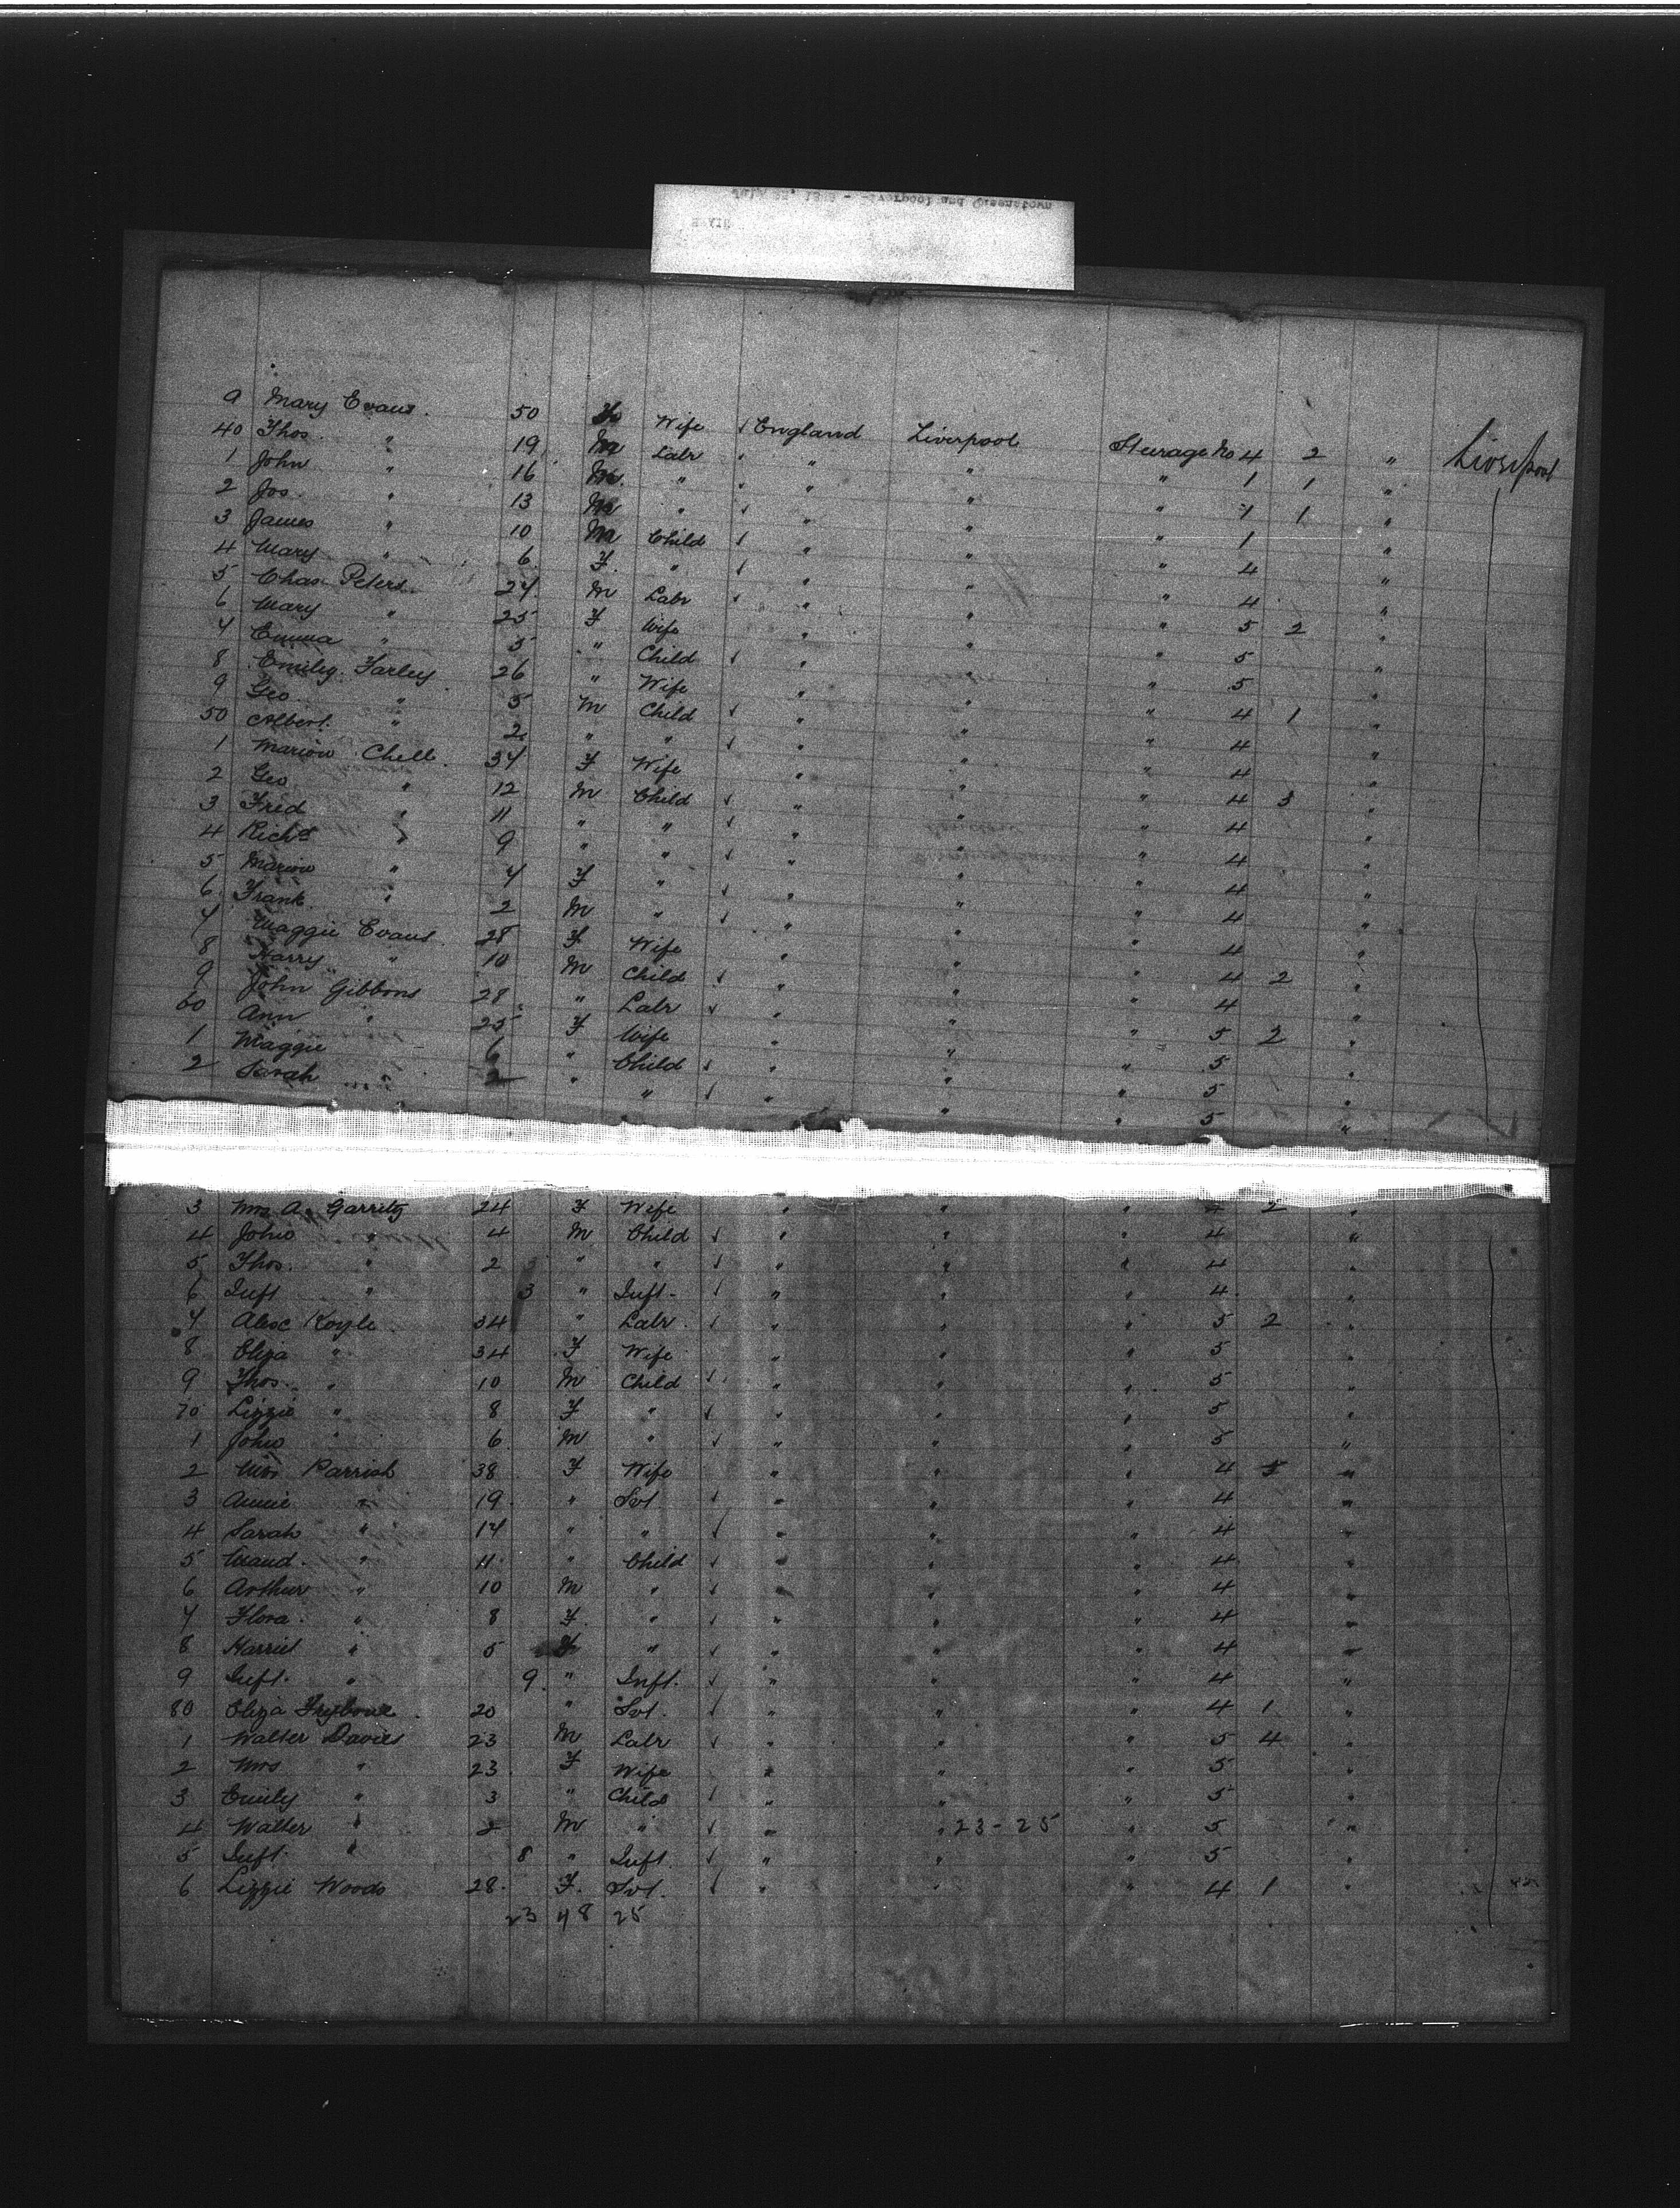 9 Mary Evans. 50 F Wife ✓ England Liverpool Steerage No 4 2 " Liverpool
40 Thos. " 19 M Labr " " " " 1 1 "
1 John " 16 M. " " " " " 1 1 "
2 Jos. " 13 M " ✓ " " " 1 "
3 James " 10 M Child ✓ " " " 4 "
4 Mary " 6. F. " ✓ " " " 4 "
5 Chas. Peters. 27. M Labr ✓ " " " 5 2 "
6 Mary " 25 F Wife " " " 5 "
7 Emma " 3 " Child ✓ " " " 5 "
8 Emily Farley 26 " Wife " " " 4 1 "
9 Geo. " 5 M Child ✓ " " " 4 "
50 Albert. " 2 " " ✓ " " " 4 "
1 Marion Chell. 37 F Wife " " " 4 3 "
2 Geo. " 12 M Child ✓ " " " 4 "
3 Fred " 11 " " ✓ " " " 4 "
4 Richd " 9 " " ✓ " " " 4 "
5 Marion " 7 F " ✓ " " " 4 "
6 Frank. " 2 M " ✓ " " " 4 "
7 Maggie Evans. 28 F Wife " " " 4 2 "
8 Harry " 10 M Child ✓ " " " 4 "
9 John Gibbons 28 " Labr ✓ " " " 5 2 "
60 Ann " 25 F Wife " " " 5 "
1 Maggie 6 " Child ✓ " " " 5 "
2 Sarah " 2 " " ✓ " " " 5 "
3 Mrs A. Garrity 24 F Wife " " " 4 2 "
4 John " 4 M Child ✓ " " " 4 "
5 Thos. " 2 " " ✓ " " " 4 "
6 Inft " 3 " Inft. ✓ " " " 4. "
7 Alex Koyle. 34 " Labr. ✓ " " " 5 2 "
8 Eliza " 34 F Wife " " " 5 "
9 Thos. " 10 M Child ✓ " " " 5 "
70 Lizzie " 8 F " ✓ " " " 5 "
1 John " 6. M " ✓ " " " 5 "
2 Mrs Parrish 38 F Wife " " " 4 5 "
3 Annie " 19. " Svt. ✓ " " " 4 "
4 Sarah " 17 " " ✓ " " " 4 "
5 Maud. " 11 " Child ✓ " " " 4 "
6 Arthur " 10 M " ✓ " " " 4 "
7 Flora. " 8 F. " ✓ " " " 4 "
8 Harriet " 5 F " ✓ " " " 4 "
9 Inft. " 9. " Inft. ✓ " " " 4 "
80 Eliza 20 " Svt. ✓ " " " 4 1 "
1 Walter Davies 23 M Labr ✓ " " " 5 4 "
2 Mrs " 23. F Wife " " " 5 "
3 Emily " 3 " Child ✓ " " " 5 "
4 Walter " 2 M " ✓ " " 23-25 " 5 "
5 Inft. " 8 " Inft. ✓ " " " 5 "
6 Lizzie Woods 28. F. Svt. ✓ " " " 4 1 "
23 48 25